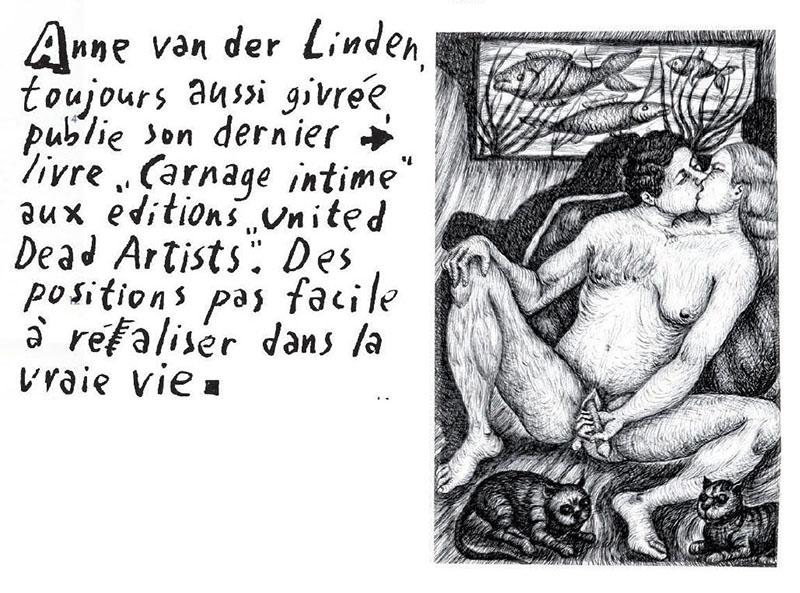 Anne van der Linden,
toujours aussi givrée,
publie son dernier →
livre „Carnage intime"
aux editions „United
Dead Artists". Des
positions pas facile
à réaliser dans la
vraie vie ■